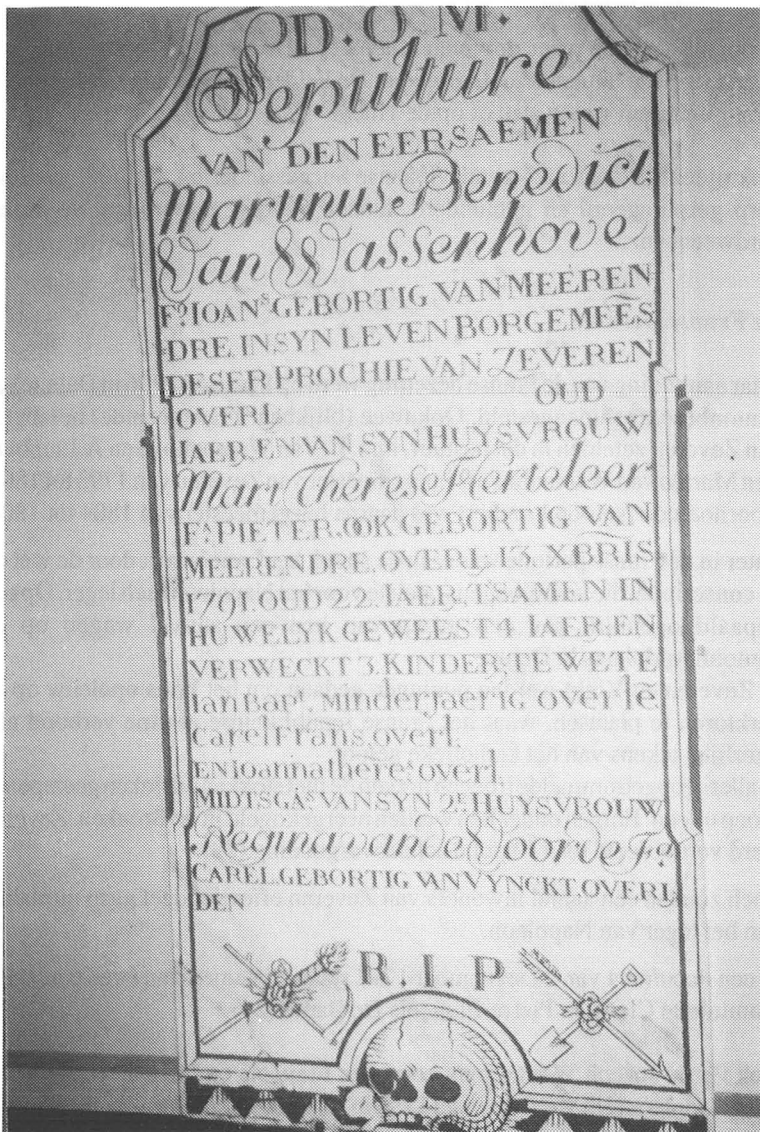 D.O.M.
Sepulture
VAN DEN EERSAEMEN
Martinus Benedict:
Van Wassenhove
F.s IOAN.s GEBORTIG VAN MEEREN
DRE, IN SYN LEVEN BORGEMEES̄
DESER PROCHIE VAN ZEVEREN
OVERL OUD
IAER, EN VAN SYN HUYSVROUW
Marī Therese Herteleer
F.a PIETER, OOK GEBORTIG VAN
MEERENDRE, OVERL 13 XBRIS
1791. OUD 22. IAER, TSAMEN IN
HUWELYK GEWEEST 4 IAER EN
VERWECKT 3. KINDERS, TE WETE
Ian Bap.t Minderjaerig overlē
Carel Frans. overl.
EN Ioanna there.s overl.
MIDTSGA.s VAN SYN 2.e HUYSVROUW
Regina vande Voorde F.a
CAREL. GEBORTIG VAN VYNCKT. OVERL
DEN
R.I.P